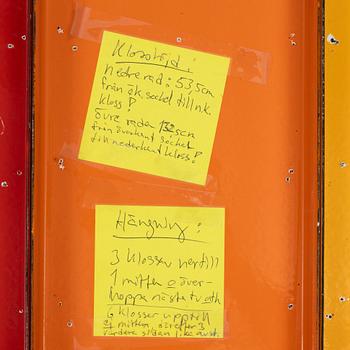 Klosshöjd:
nedre rad: 53,5cm
från ök. sockel till nk
kloss!
övre raden 132,5cm
från överkant sockel
till nederkant kloss!
Hängning:
3 klossar nertill
1 mitten o över-
hoppa nästa tv. oth
6 klossar upptill
2 mitten, och efter 3
sidan lika avst.